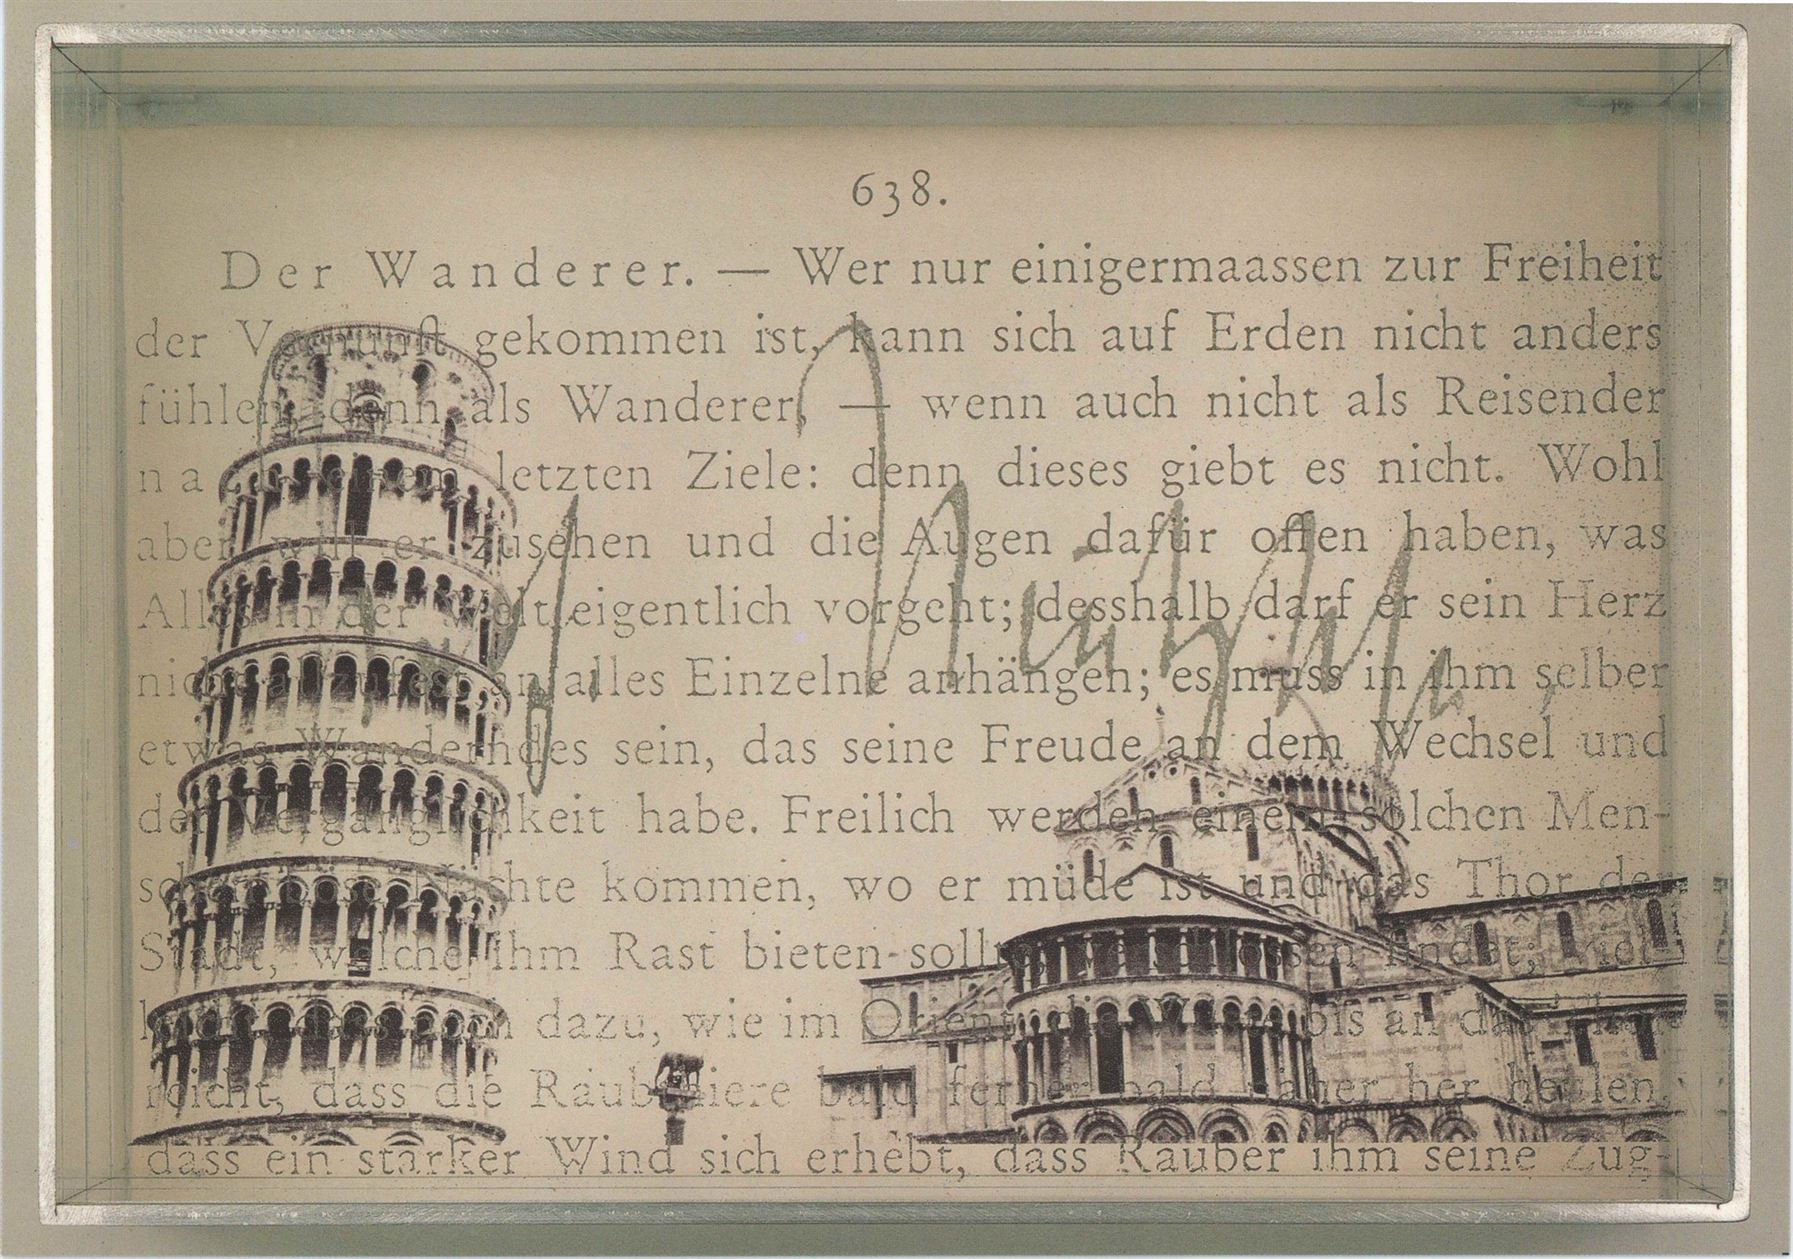 638.
Der Wanderer. — Wer nur einigermaassen zur Freiheit
der Vernunft gekommen ist, kann sich auf Erden nicht anders
fühlen, denn als Wanderer, — wenn auch nicht als Reisender
nach einem letzten Ziele: denn dieses giebt es nicht. Wohl
aber will er zusehen und die Augen dafür offen haben, was
Alles in der Welt eigentlich vorgeht; desshalb darf er sein Herz
nicht allzufest an alles Einzelne anhängen; es muss in ihm selber
etwas Wanderndes sein, das seine Freude an dem Wechsel und
der Vergänglichkeit habe. Freilich werden einem solchen Men-
schen böse Nächte kommen, wo er müde ist und das Thor der
Stadt, welche ihm Rast bieten sollte, verschlossen findet; viel-
leicht, dass noch dazu, wie im Orient, die Wüste bis an das Thor
reicht, dass die Raubthiere bald ferner bald näher her heulen,
dass ein starker Wind sich erhebt, dass Räuber ihm seine Zug-